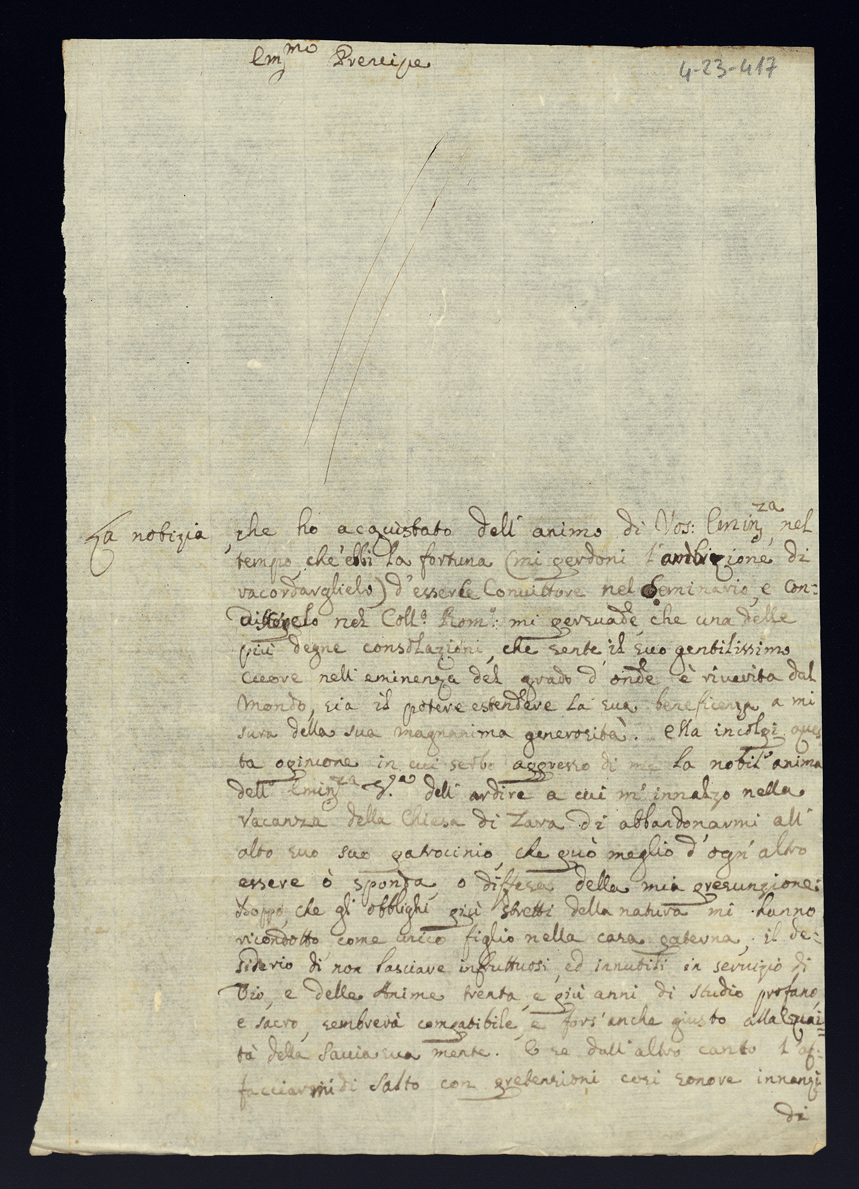 Em.mo Prencipe
4-23-417
La notizia che ho acquistato dell' animo di Vos: Emin.za nel
tempo, che ebbi la fortuna (mi perdoni l'ambizione di
racordarglielo) d'esserle Convittore nel Seminario, e con=
discepolo nel Coll.o Rom.o: mi persuade, che una delle
più degne consolazioni, che sente il suo gentilissimo
Cuore nell' eminenza del grado d'onde è riverita dal
Mondo, sia il potere estendere la sua beneficenza a mi
sura della sua magnanima generosità. Ella incolpi ques
ta opinione in cui serbo appresso di me la nobil' anima
dell' Emin.za S.a dell' ardire a cui m'innalzo nella
Vacanza della Chiesa di Zara di abbandonarmi all'
alto suo suo patrocinio, che può meglio d'ogn' altro
essere ò sponda, o diffesa della mia presunzione:
Doppo, che gl' obblighi più stretti della natura mi hanno
ricondotto come unico figlio nella casa paterna, il de=
siderio di non lasciare infruttuosi, ed innutili in servizio di
Dio, e delle Anime trenta, e più anni di studio profano,
e sacro, sembrerà compatibile, e fors' anche giusto alla Equi=
tà della Savia sua mente. E se dall' altro canto l'af=
facciarmi di salto con pretensioni così sonore innanzi
di